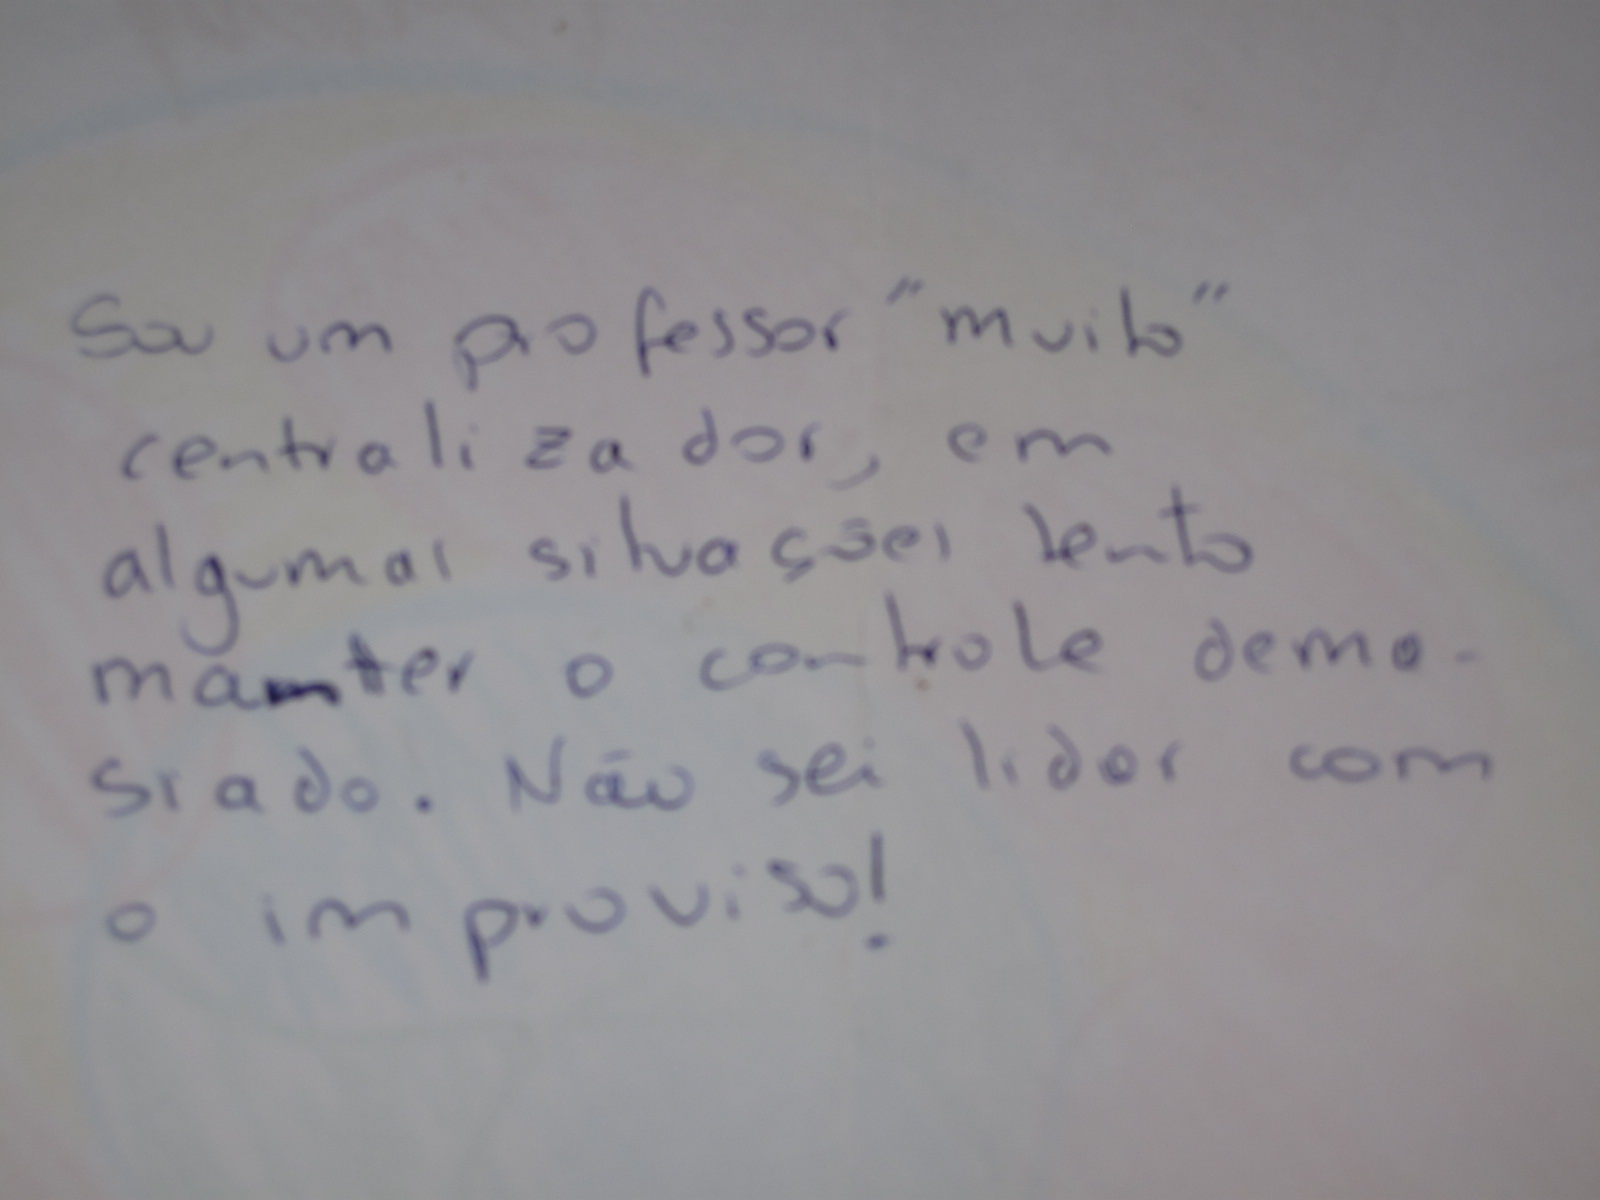 Sou um professor "muito"
centralizador, em
algumas situações tento
manter o controle dema-
siado. Não sei lidar com
o improviso!